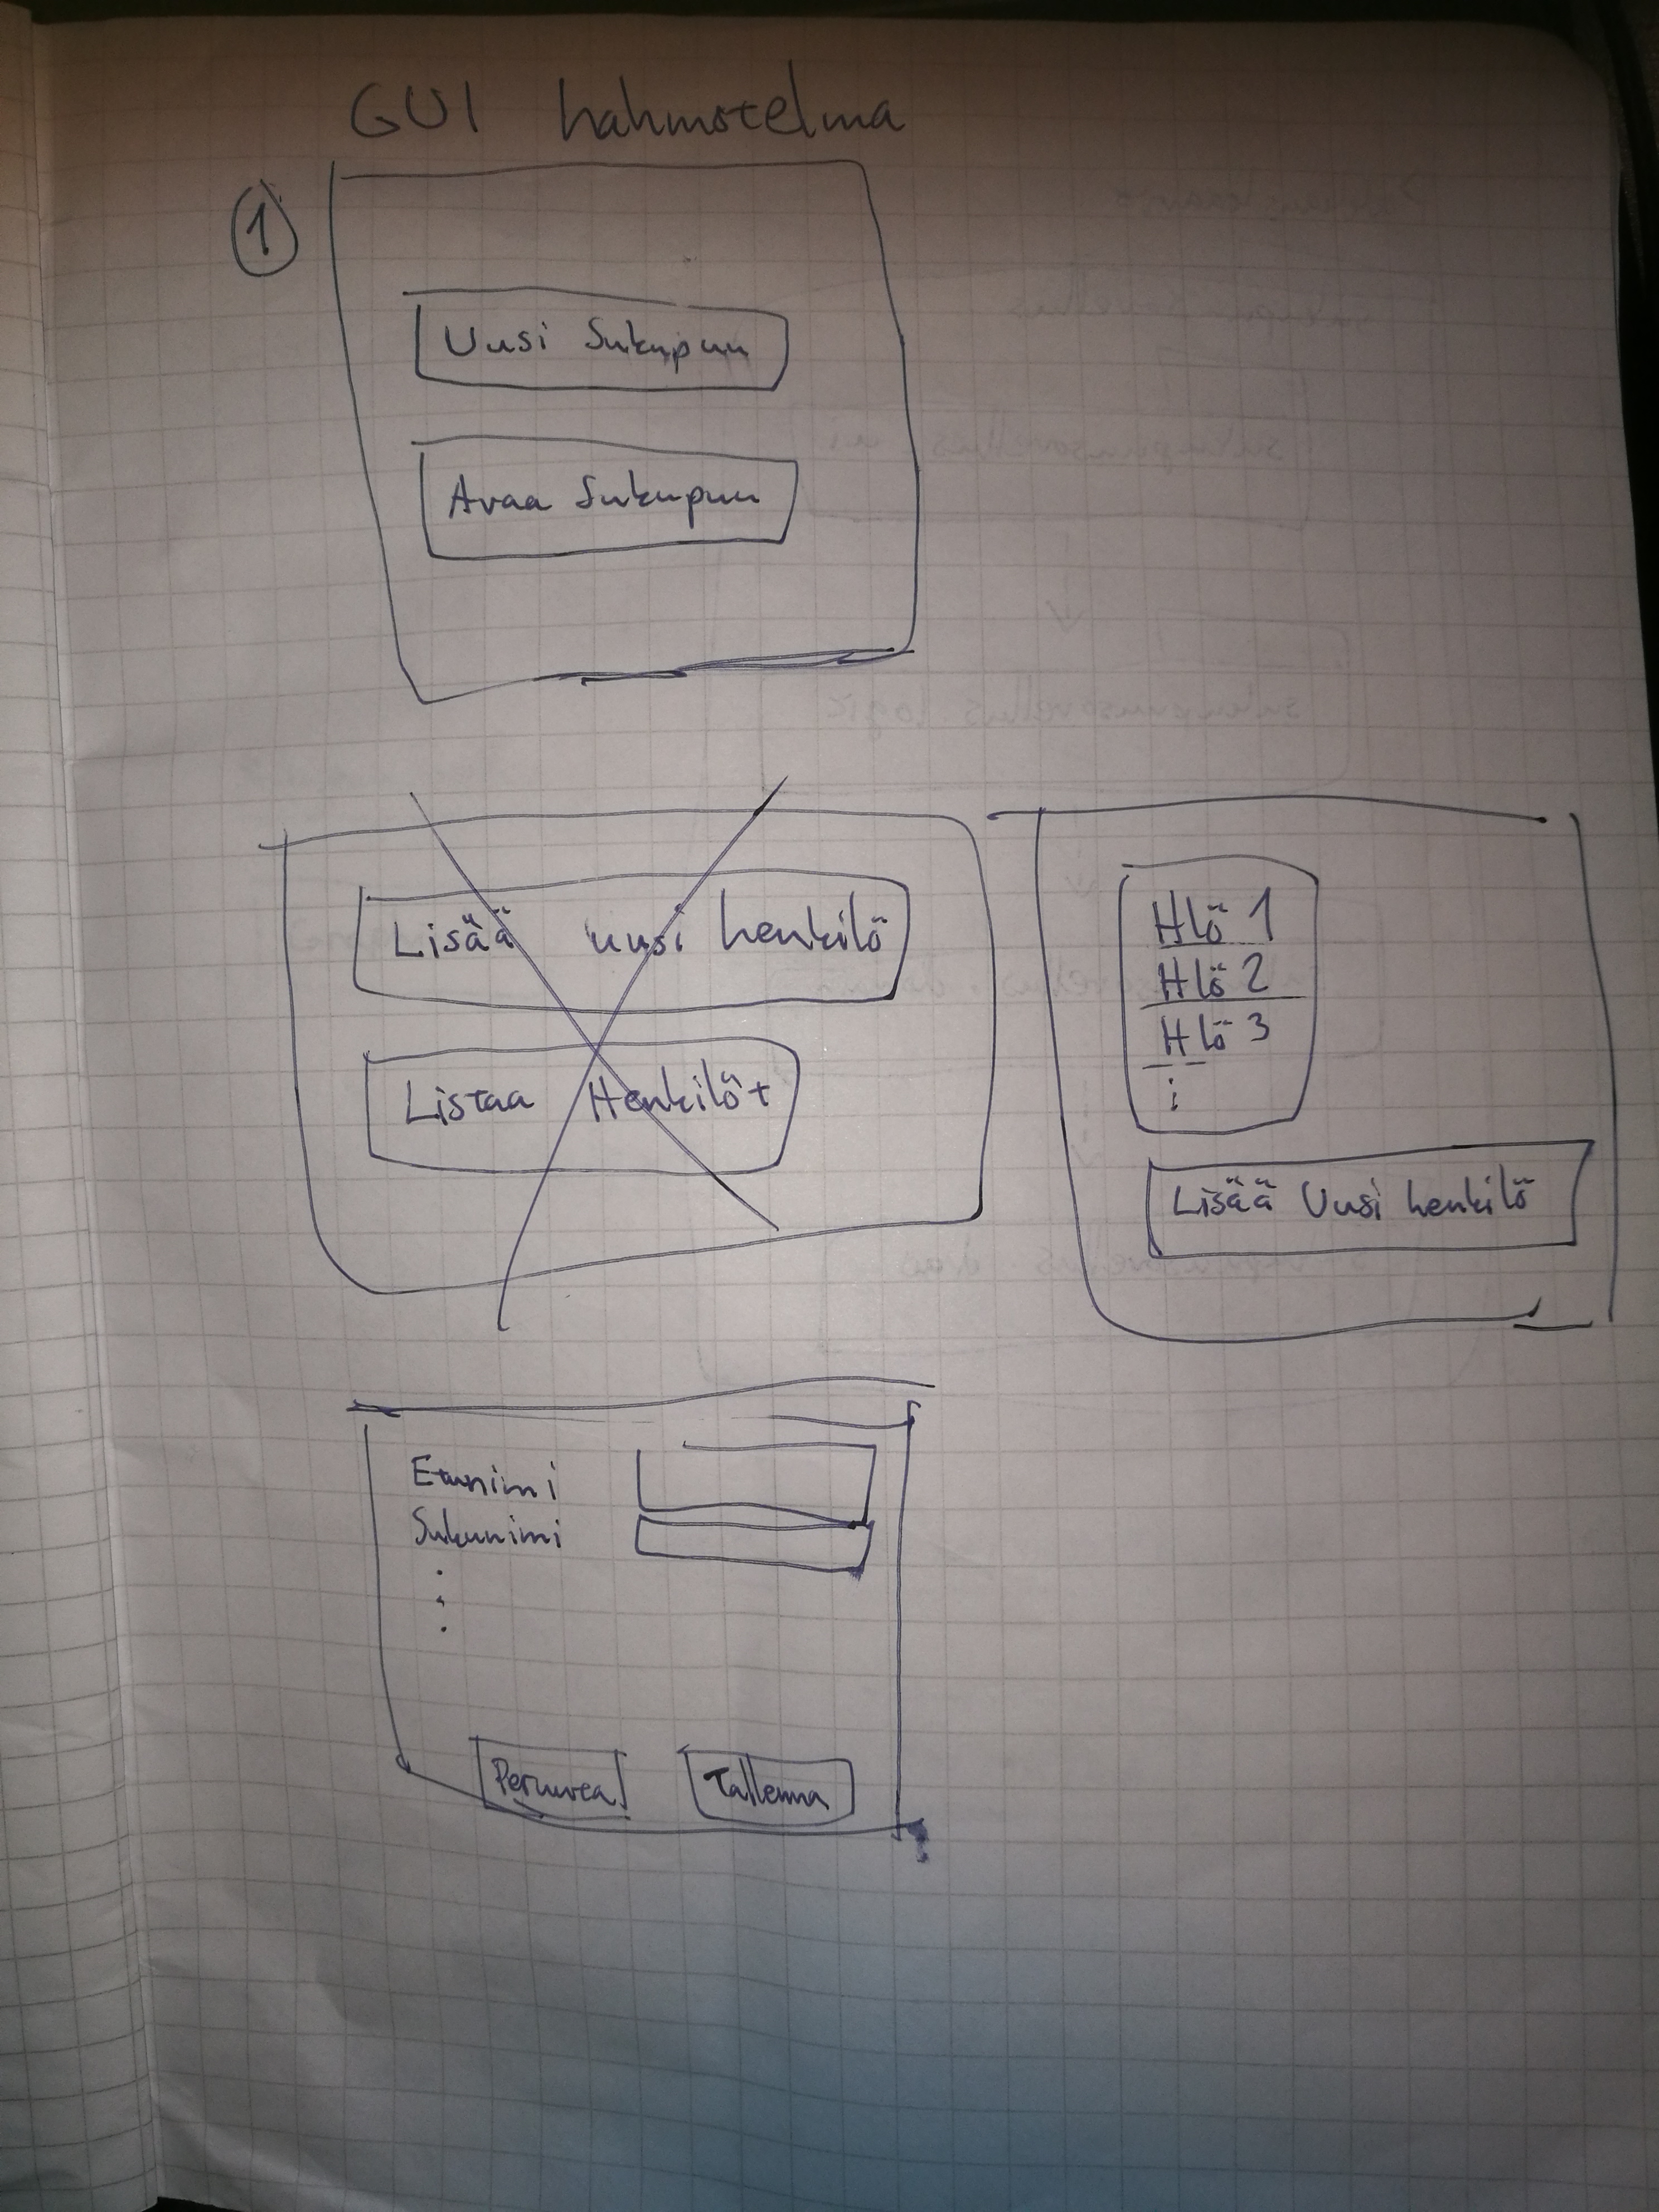 GUI hahmotelma
1
Uusi Sukupuu
Avaa Sukupuu
Lisää uusi henkilö
Listaa Henkilöt
Hlö 1
Hlö 2
Hlö 3
Lisää Uusi henkilö
Etunimi
Sukunimi
Peruuta
Tallenna